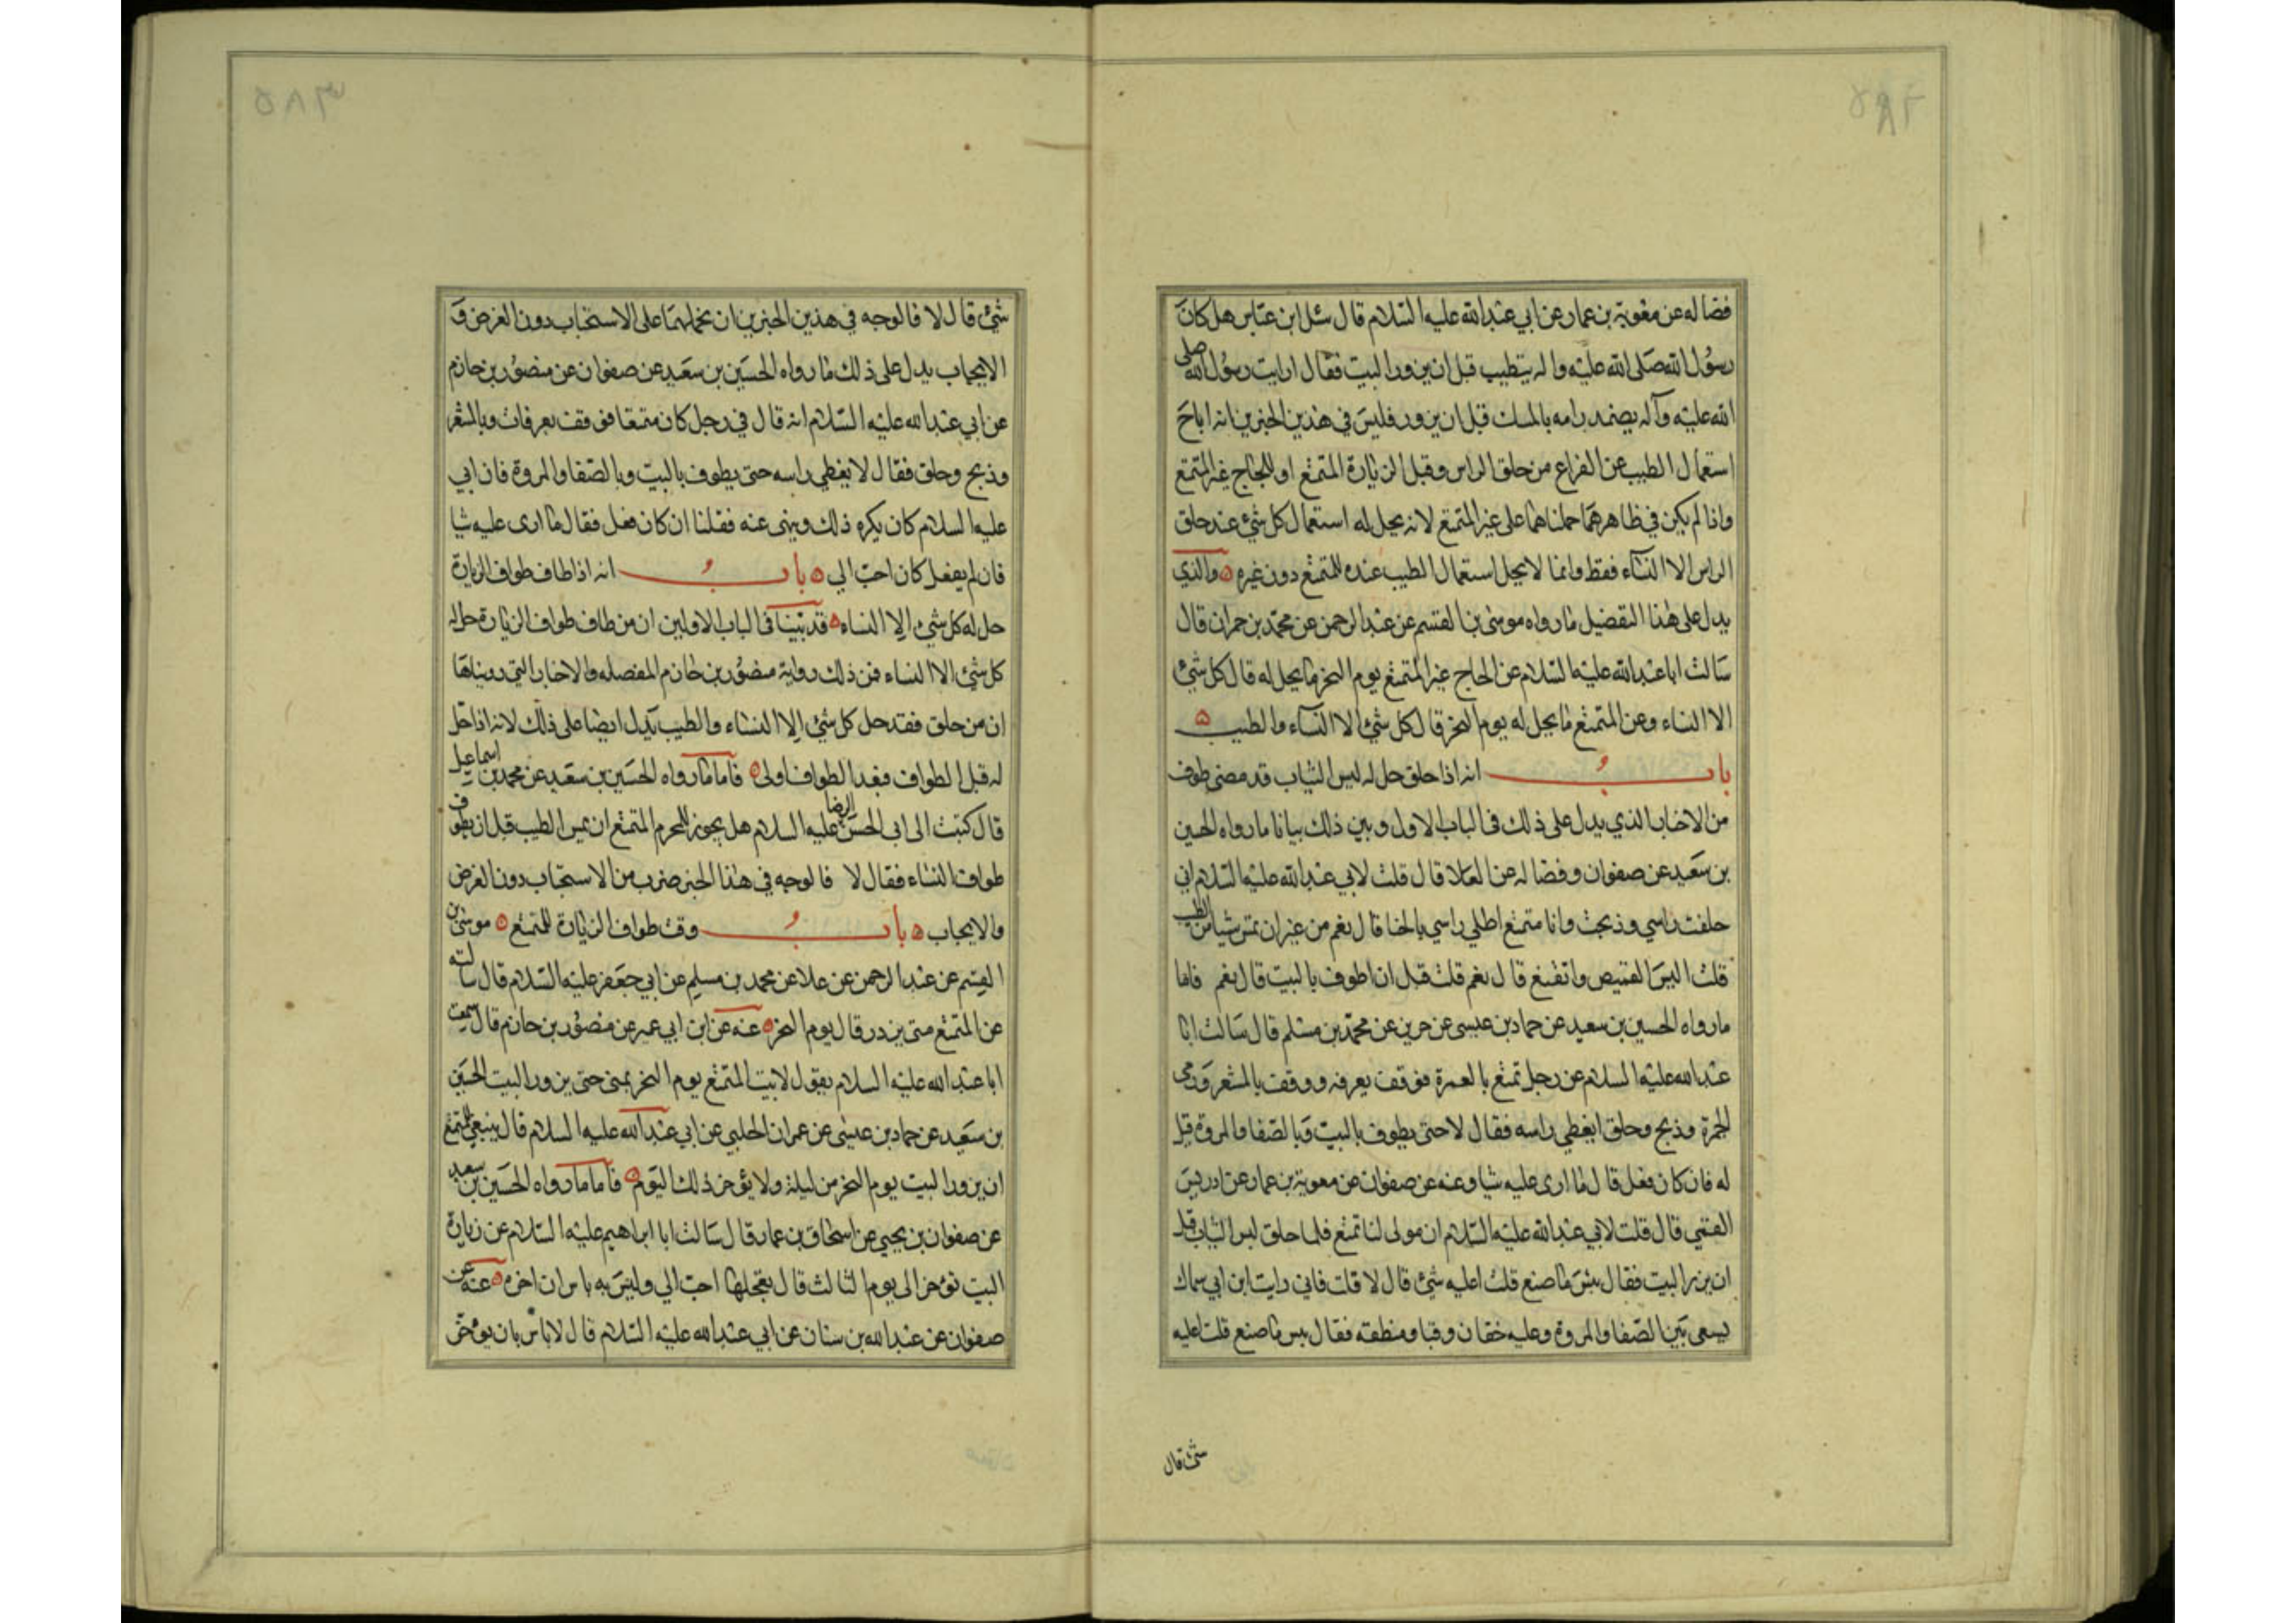 فضاله عن معوية بن عمار عن ابي عبد الله عليه السلام قال سئل ابن عباس هل كان
رسول الله صلى الله عليه واله يتطيب قبل ان يزور البيت فقال ارايت رسول الله صلى
الله عليه وآله يضمد راسه بالمسك قبل ان يزور فليس في هذين الخبرين انه اباح
استعمال الطيب عن الفراغ من حلق الراس وقبل الزيارة المتمتع او للحاج غير المتمتع
واذا لم يكن في ظاهرهما حملناهما على غير المتمتع لانه يحل له استعمال كل شئ عند حلق
الراس الا النساء فقط وانما لا يحل استعمال الطيب عنده للمتمتع دون غيره ۵ والذي
يدل على هذا التفضيل مارواه موسى بن القسم عن عبد الرحمن عن محمد بن حمران قال
سالت ابا عبد الله عليه السلام عن الحاج غير المتمتع يوم النحر ما يحل له قال كل شئ
الا النساء وعن المتمتع ما يحل له يوم النحر قال كل شئ الا النساء والطيب ۵
باب انه اذا حلق حل له لبس الثياب قد مضى طرف
من الاخبار الذي يدل على ذلك في الباب الاول وبين ذلك بيانا مارواه الحسين
بن سعيد عن صفوان وفضاله عن العلا قال قلت لابي عبد الله عليه السلام اني
حلقت راسي وذبحت وانا متمتع اطلي راسي بالحنا قال نعم من غير ان تمس شيا من الطيب
قلت البس القميص واتقنع قال نعم قلت قبل ان اطوف بالبيت قال نعم فاما
مارواه الحسين بن سعيد عن حماد بن عيسى عن حريز عن محمد بن مسلم قال سالت ابا
عبد الله عليه السلام عن رجل تمتع بالعمرة فوقف بعرفه ووقف بالمشعر ورمى
الجمرة وذبح وحلق ايغطي راسه فقال لا حتى يطوف بالبيت وبالصفا والمروة قيل
له فان كان فعل قال ما ارى عليه شيا وعنه عن صفوان عن معوية بن عمار عن ادريس
القمي قال قلت لابي عبد الله عليه السلام ان مولى لنا تمتع فلما حلق لبس الثياب قبل
ان يزر البيت فقال بئس ما صنع قلت اعليه شئ قال لا قلت فاني رايت ابن ابي سماك
يسعى بين الصفا والمروة وعليه خفان وقبا ومنطقه فقال بس ما صنع قلت اعليه
شئ قال
٣٨٥
شئ قال لا فالوجه في هذين الخبرين ان نحملهما على الاستحباب دون الفرض و
الايجاب يدل على ذلك ما رواه الحسين بن سعيد عن صفوان عن منصور بن حازم
عن ابي عبد الله عليه السلام انه قال في رجل كان متمتعا فوقف بعرفات وبالمشعر
وذبح وحلق فقال لا يغطي راسه حتى يطوف بالبيت وبالصفا والمروة فان ابي
عليه السلام كان يكره ذلك وينهى عنه فقلنا ان كان فعل فقال ما ارى عليه شيا
فان لم يفعل كان احب الي ۵ باب انه اذا طاف طواف الزيارة
حل له كل شئ الا النساء ۵ قد بينا في الباب الاولين ان من طاف طواف الزيارة حل له
كل شئ الا النساء فمن ذلك رواية منصور بن حازم المفصله والاخبار التي رويناها
ان من حلق فقد حل كل شئ الا النساء والطيب يدل ايضا على ذلك لانه اذا حل
له قبل الطواف فبعد الطواف اولى ۵ فاما مارواه الحسين بن سعيد عن محمد بن اسماعيل
قال كتبت الى ابي الحسن الرضا عليه السلام هل يجوز للمحرم المتمتع ان يمس الطيب قبل ان يطوف
طواف النساء فقال لا فالوجه في هذا الخبر ضرب من الاستحباب دون الفرض
والايجاب ۵ باب وقت طواف الزيارة للمتمتع ۵ موسى بن
القسم عن عبد الرحمن عن علا عن محمد بن مسلم عن ابي جعفر عليه السلام قال سالته
عن المتمتع متى يزور قال يوم النحر ۵ عنه عن ابن ابي عمير عن منصور بن حازم قال سمعت
ابا عبد الله عليه السلام يقول لا يبيت المتمتع يوم النحر بمنى حتى يزور البيت الحسين
بن سعيد عن حماد بن عيسى عن عمران الحلبي عن ابي عبد الله عليه السلام قال ينبغي للمتمتع
ان يزور البيت يوم النحر من ليلة ولا يؤخر ذلك اليوم ۵ فاما مارواه الحسين بن سعيد
عن صفوان بن يحيى عن اسحاق بن عمار قال سالت ابا ابراهيم عليه السلام عن زيارة
البيت تؤخر الى يوم الثالث قال تعجلها احب الي وليس به باس ان اخره ۵ عنه عن
صفوان عن عبد الله بن سنان عن ابي عبد الله عليه السلام قال لا باس بان يؤخر